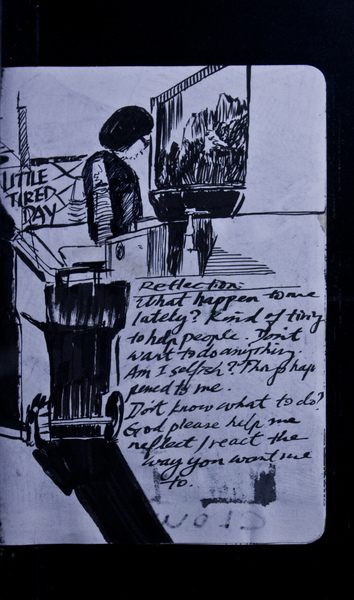 LITTLE
TIRED
DAY
Reflection:
What happen to me
lately? Kind of tiring
to help people. Don't
want to do anything.
Am I selfish? Thats hap
pened to me.
Don't know what to do?
God please help me
reflect / react the
way you want me
to.